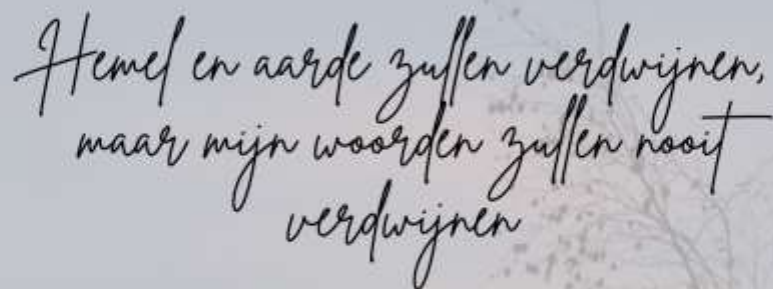 Hemel en aarde zullen verdwijnen,
maar mijn woorden zullen nooit
verdwijnen